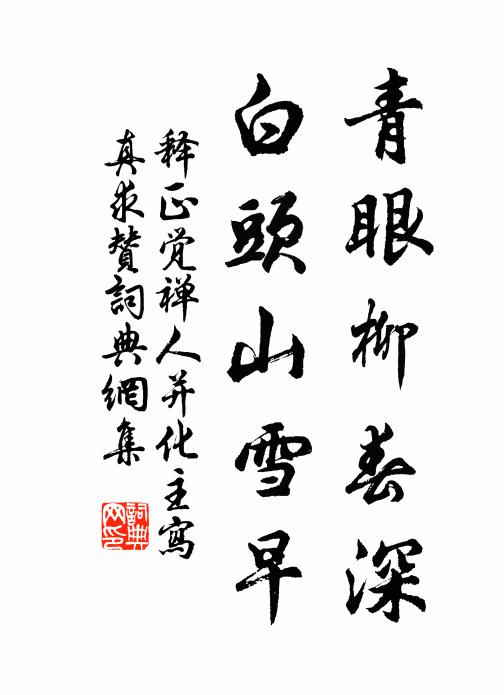 青眼柳春深
白頭山雪早
释正觉禅人并化主寫
真求贊詞典網集
詞典网印